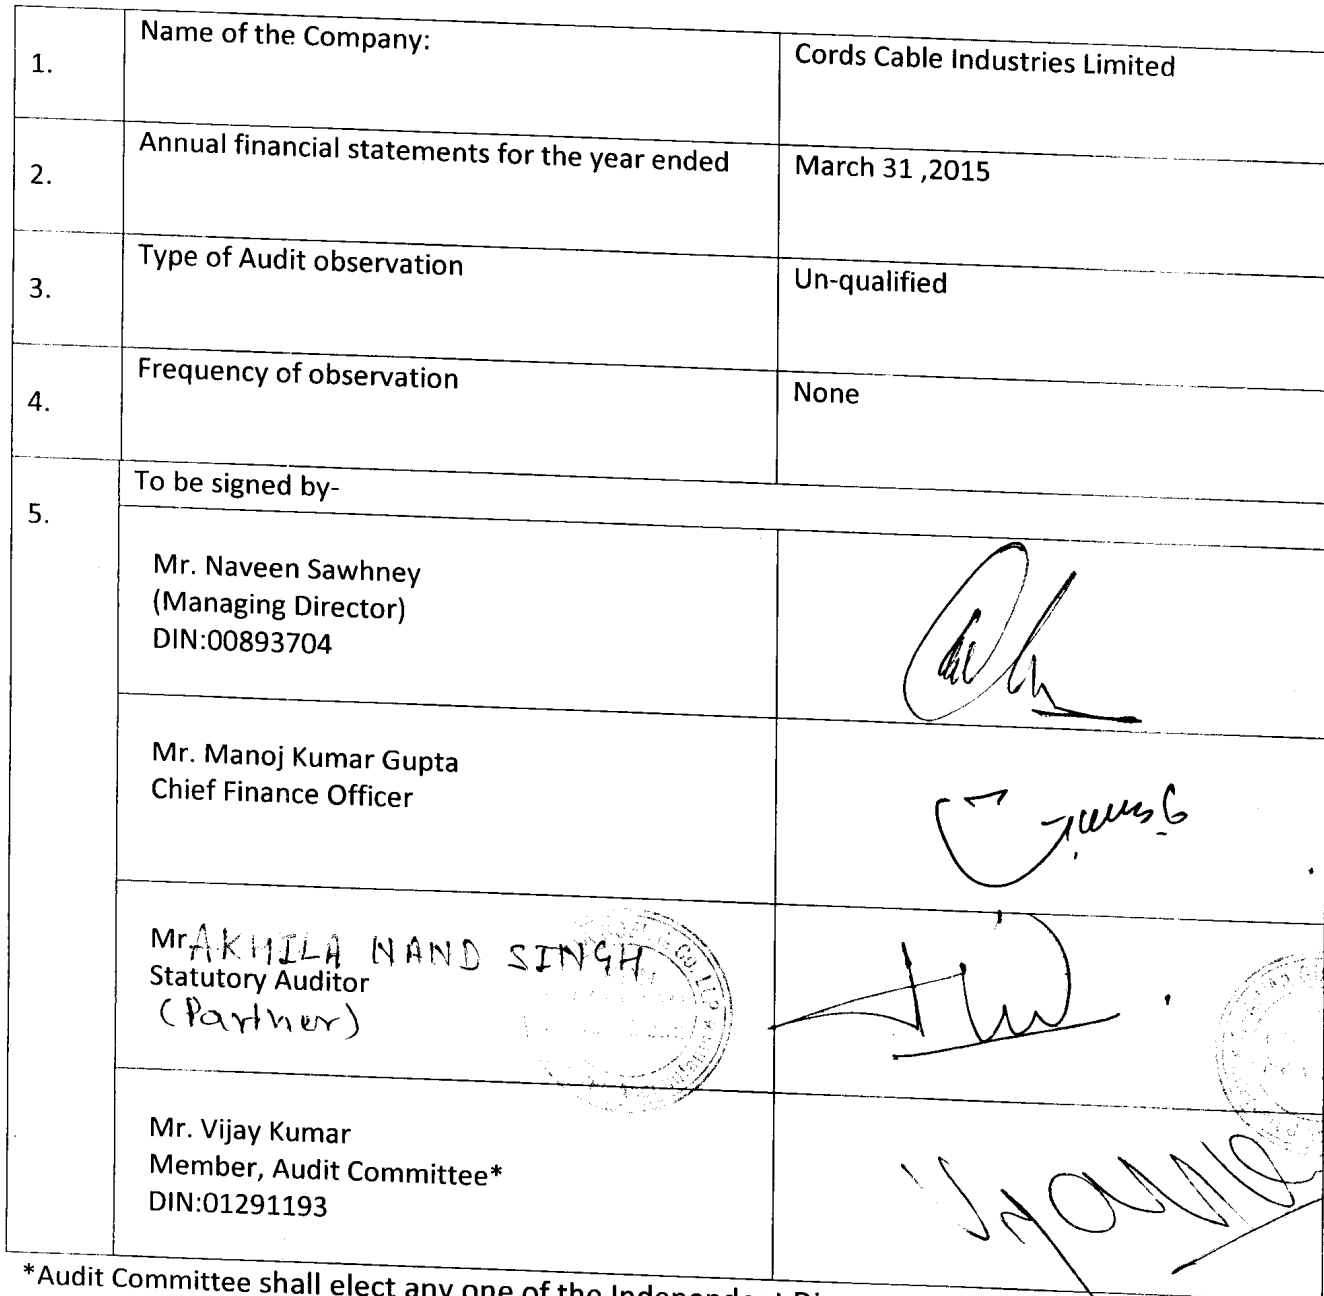 1.
Name of the Company:
Cords Cable Industries Limited
2.
Annual financial statements for the year ended
March 31 ,2015
3.
Type of Audit observation
Un-qualified
4.
Frequency of observation
None
5.
To be signed by-
Mr. Naveen Sawhney
(Managing Director)
DIN:00893704
Mr. Manoj Kumar Gupta
Chief Finance Officer
Mr. AKHILA NAND SINGH
Statutory Auditor
(Partner)
Mr. Vijay Kumar
Member, Audit Committee*
DIN:01291193
*Audit Committee shall elect any one of the Independent